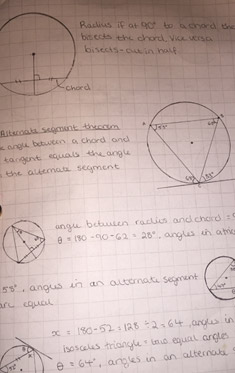 Radius if at 90° to a chord the
bisects the chord. Vice versa
bisects - cut in half
chord
Alternate segment theorem
angle between a chord and
tangent equals the angle
the alternate segment
angle between radius and chord =
θ = 180-90-62 = 28°, angles in a
58°, angles in an alternate segment
are equal
x = 180-52 = 128 ÷ 2 = 64, angles in
isosceles triangle = two equal angles
θ = 64°, angles in an alternate